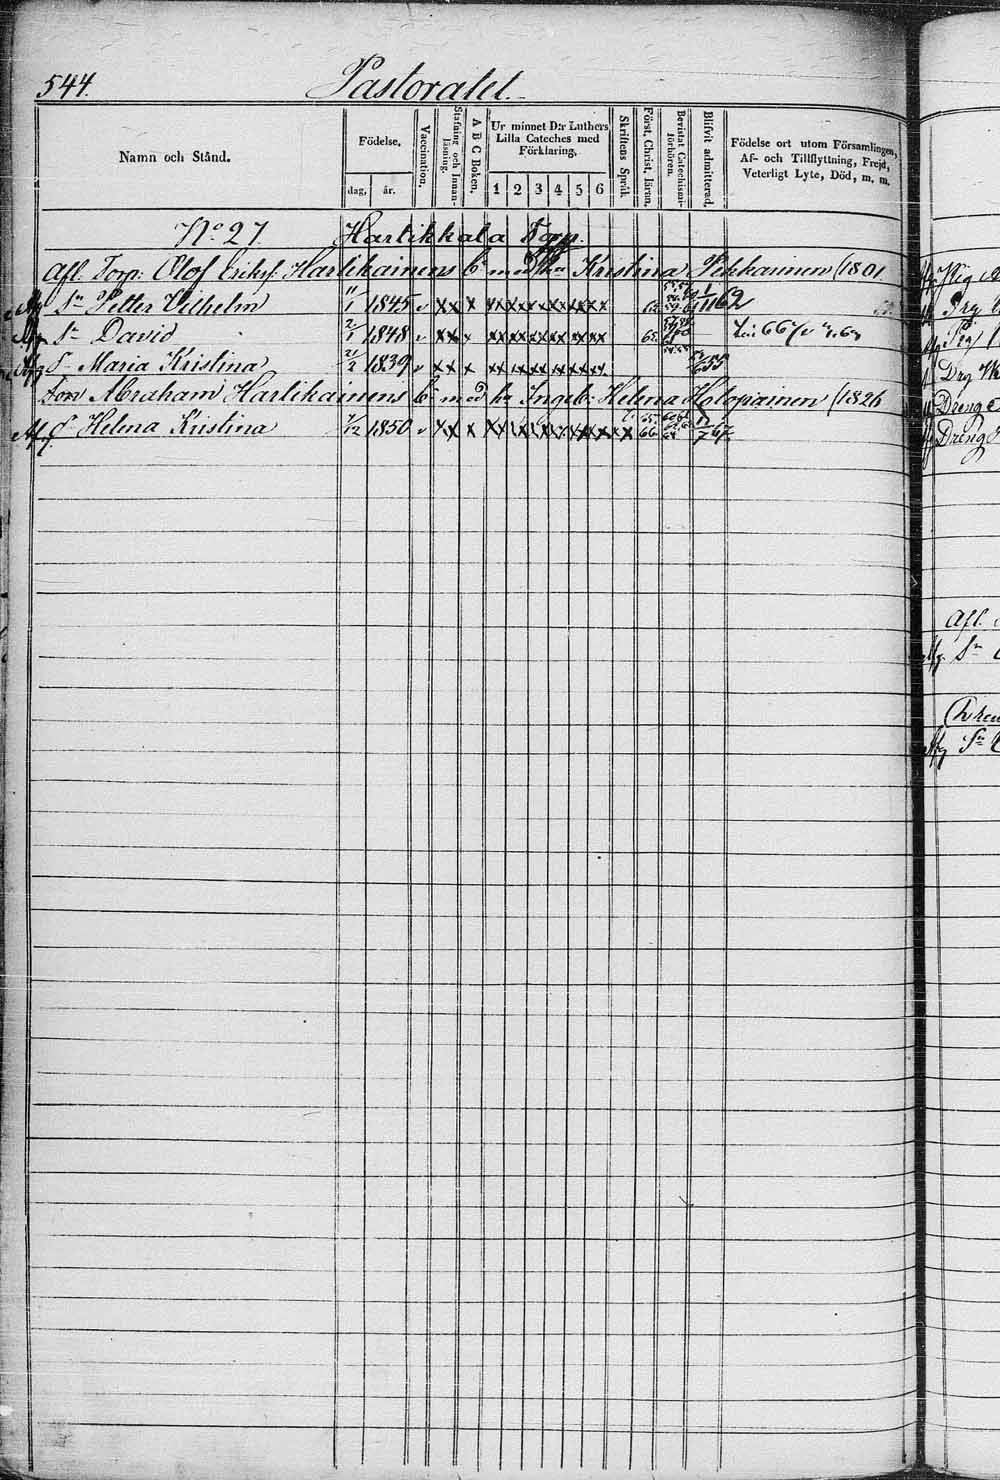 544. Pastoratet.
Namn och Stånd.
Födelse.
dag.
år.
Vaccination.
Stafning och Innan-läsning.
A B C Boken.
Ur minnet D:r Luthers
Lilla Cateches med
Förklaring.
1 2 3 4 5 6
Skriftens Språk.
Först. Christ. läran.
Bevistat Catechismi-förhören.
Blifvit admitterad.
Födelse ort utom Församlingen,
Af- och Tillflyttning, Frejd,
Veterligt Lyte, Död, m. m.
No 27 Hartikkala Torp.
Afl. Torp: Olof Eriks: Hartikainens b med Kristina Pekkarinen (1801
Sn Petter Vilhelm 11/1 1845 v x x x x x x x x x 62. 1162
Sn David 2/1 1848 v x x x x x x x x x 65.
Maria Kristina 21/2 1839 v x x x x x x x x x
Son Abraham Hartikainens b med h Ingeb: Helena Holopainen (1826
Helena Kristina 7/12 1850 v x x x x x x x x x x 66. 7 67
Pig
Drg
Dreng
Dreng
Afl.
Sn
Sn